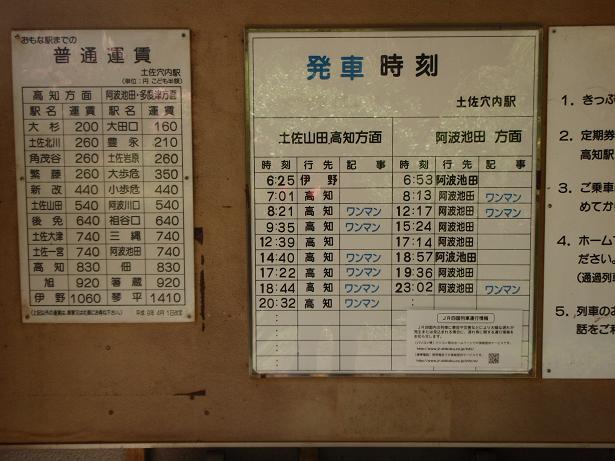 おもな駅までの
普通運賃
土佐穴内駅
(単位:円 こども半額)
高知方面 阿波池田・多度津方面
駅名 運賃 駅名 運賃
大杉 200 大田口 160
土佐北川 260 豊永 210
角茂谷 260 土佐岩原 260
繁藤 260 大歩危 350
新改 440 小歩危 440
土佐山田 540 阿波川口 540
後免 640 祖谷口 640
土佐大津 740 三縄 740
土佐一宮 740 阿波池田 740
高知 830 佃 830
旭 920 箸蔵 920
伊野 1060 琴平 1410
平成 8年 4月 1日改定
発車時刻
土佐穴内駅
土佐山田,高知方面 阿波池田 方面
時刻 行先 記事 時刻 行先 記事
6:25 伊野 6:53 阿波池田
7:01 高知 8:13 阿波池田 ワンマン
8:21 高知 ワンマン 12:17 阿波池田 ワンマン
9:35 高知 ワンマン 15:24 阿波池田
12:39 高知 17:14 阿波池田
14:40 高知 ワンマン 18:57 阿波池田
17:22 高知 ワンマン 19:36 阿波池田
18:44 高知 ワンマン 23:02 阿波池田 ワンマン
20:32 高知 ワンマン
JR四国列車運行情報
1. きっぷ
2. 定期券
高知駅
3. ご乗車
めてか
4. ホーム
ださい。
(通過列車
5. 列車のお
話をご利